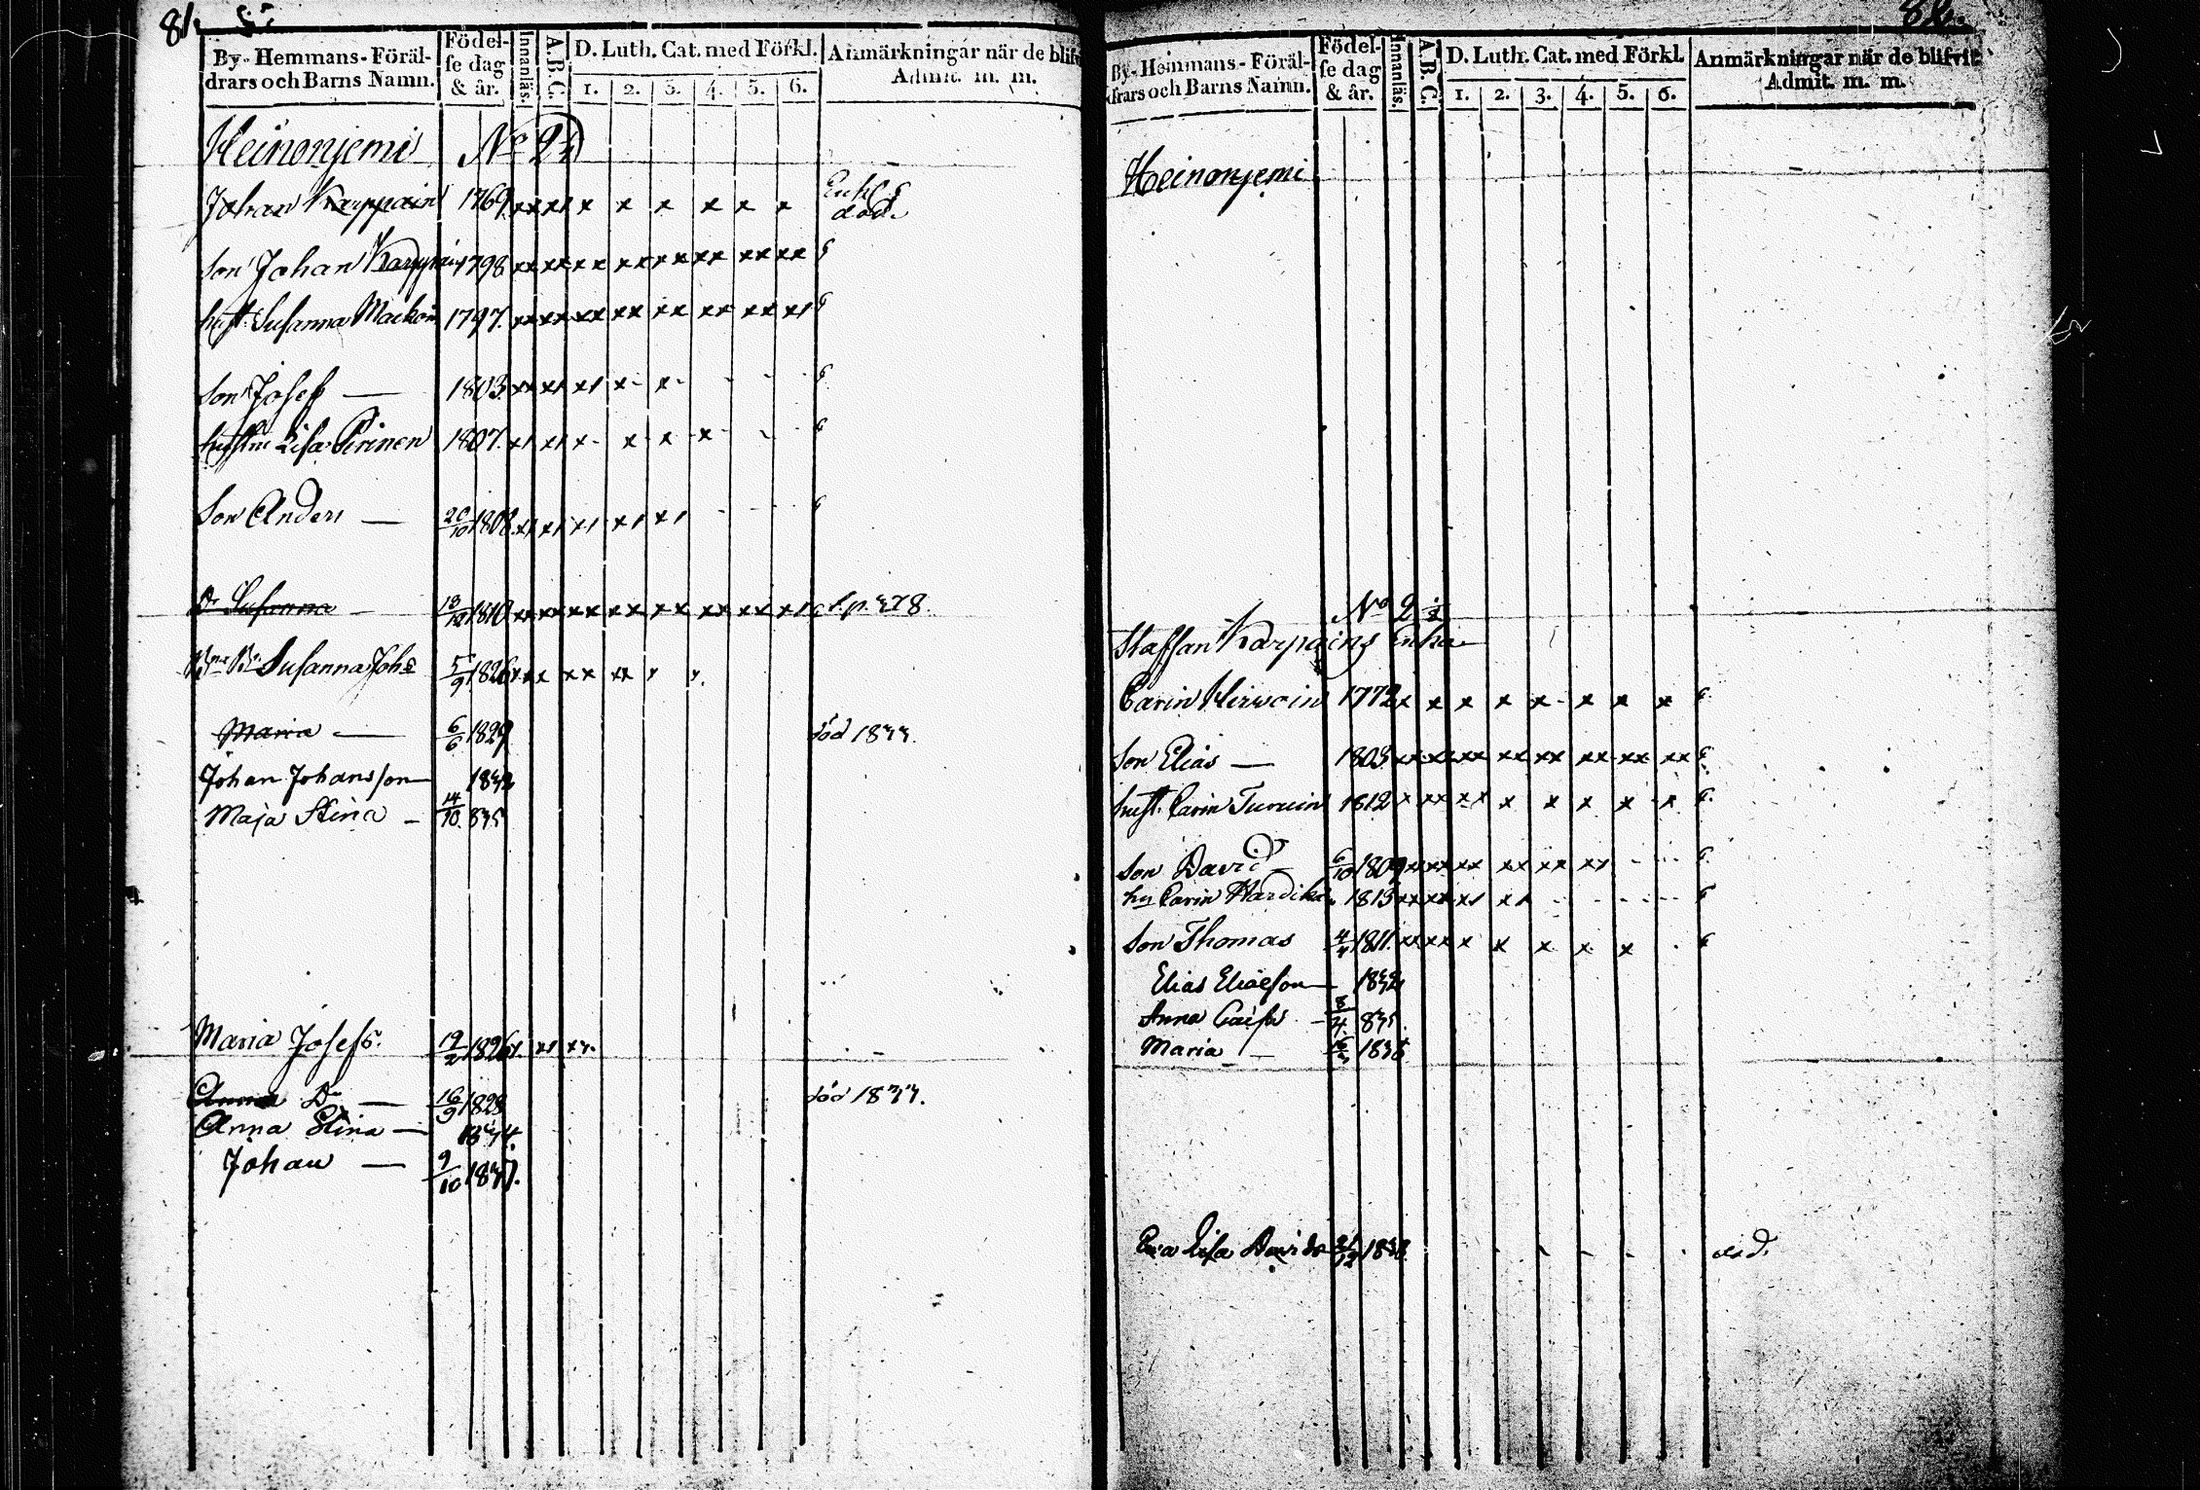 81.
By- Hemmans- Föräl-
drars och Barns Namn.
Födel-
se dag
& år.
Innanläs.
A.B.C.
D. Luth. Cat. med Förkl.
1. 2. 3. 4. 5. 6.
Anmärkningar när de blifv
Admit. m. m.
Heinonjemi No 2
Johan Karppain 1769. xx xx x x x x x x Enkl. död.
Son Johan Karppain 1798 xx xx xx xx xx xx xx xx
hust. Susanna 1797. xx xx xx xx xx xx xx
Son Josef — 1803.
Lisa Pirinen 1807.
Son Anders — 1808.
Dr Susanna — 1810 p. 378.
Susanna Johs 5/9 1826
Maria — 6/6 1829 död 1833.
Johan Johansson 1832
Maja Stina — 14/10 835
Maria Josefs. 19/2 1826
Anna Dr — 16/9 1828 död 1833.
Anna Stina — 1834.
Johan — 9/10 1837.
By- Hemmans- Föräl-
drars och Barns Namn.
Födel-
se dag
& år.
Innanläs.
A.B.C.
D. Luth. Cat. med Förkl.
1. 2. 3. 4. 5. 6.
Anmärkningar när de blifvit
Admit. m. m.
Heinonjemi
No 2
Staffan Karpains Enka
Carin Hirwoin 1772 x x x x x x x x
Son Elias — 1803 xx xx xx xx xx xx xx xx
hust. Carin Turuin 1812
Son David 6/10 1809
Carin 1813
Son Thomas 1811.
Elias Eliasson — 1832
Anna Caisa — 8/4 835.
Maria — 1838
Lisa Davids död.